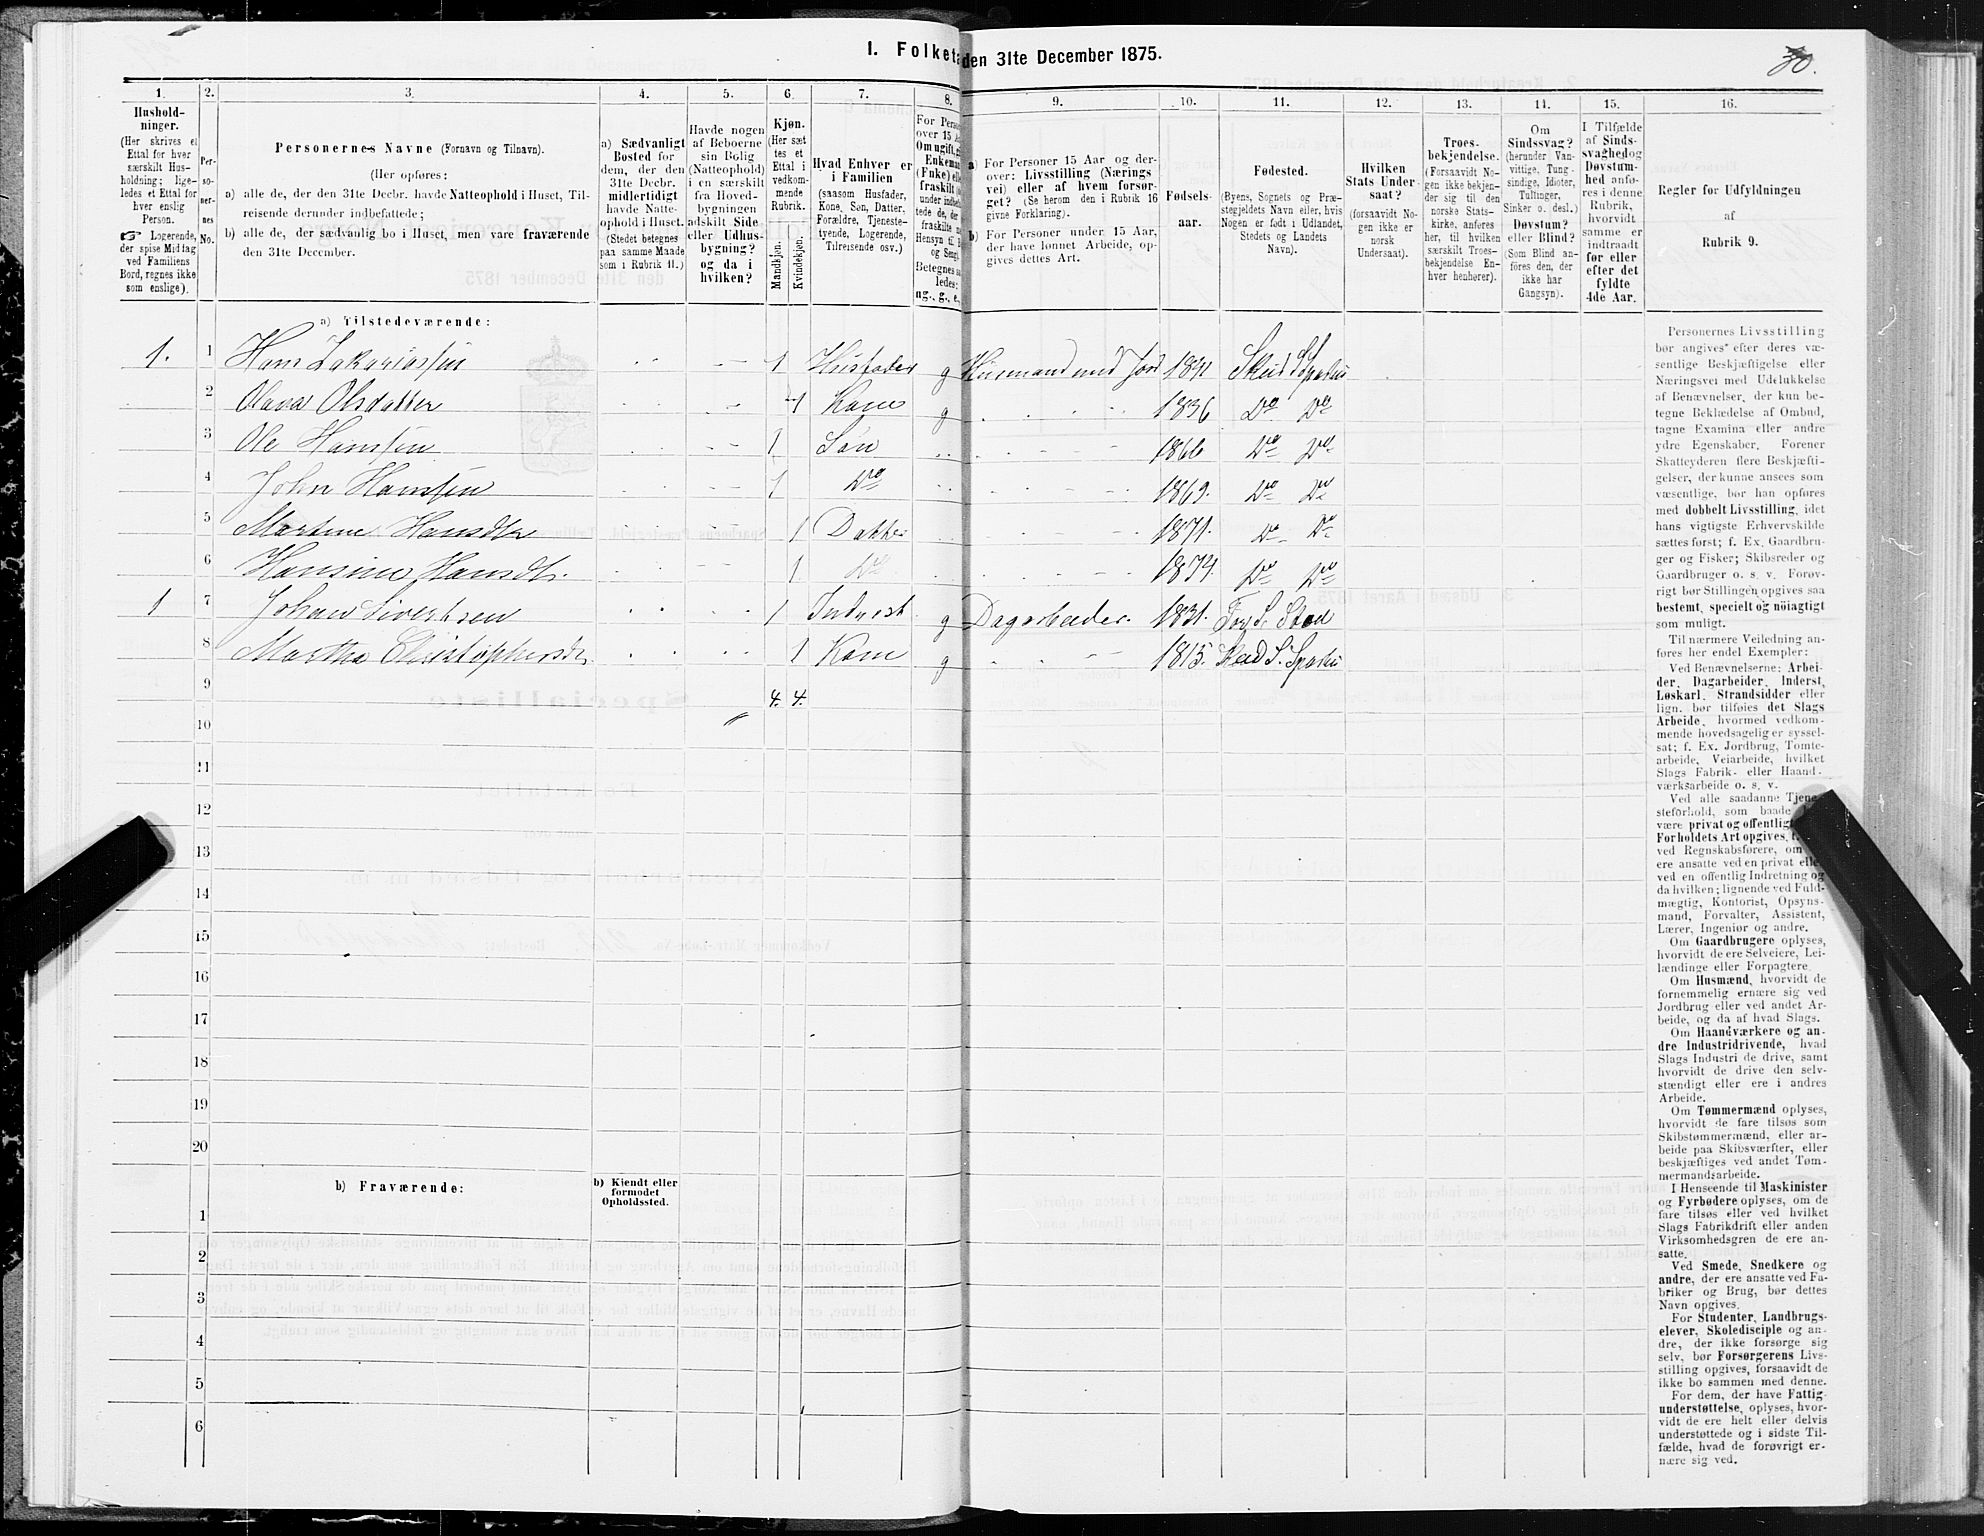 I. Folketæ den 31te December 1875.
30.
1. 2. 3. 4. 5. 6. 7. 8. 9. 10. 11. 12. 13. 14. 15. 16.
Hushold-
ninger.
(Her skrives et
Ettal for hver
særskilt Hus-
holdning; lige-
ledes et Ettal for
hver enslig
Person.
☞ Logerende,
der spise Middag
ved Familiens
Bord, regnes ikke
som enslige).
Per-
so-
ner-
nes
No.
Personernes Navne (Fornavn og Tilnavn).
(Her opføres:
a) alle de, der den 31te Decbr. havde Natteophold i Huset, Til-
reisende derunder indbefattede;
b) alle de, der sædvanlig bo i Huset, men vare fraværende
den 31te December.
a) Sædvanligt
Bosted for
dem, der den
31te Decbr.
midlertidigt
havde Natte-
ophold i Huset.
(Stedet betegnes
paa samme Maade
som i Rubrik 11.)
Havde nogen
af Beboerne
sin Bolig
(Natteophold)
i en særskilt
fra Hoved-
bygningen
adskilt Side-
eller Udhus-
bygning?
og da i
hvilken?
Kjøn.
(Her sæt
tes et
Ettal i
vedkom-
mende
Rubrik.
Mandkjøn.
Kvindekjøn.
Hvad Enhver er
i Familien
(saasom Husfader,
Kone, Søn, Datter,
Forældre, Tjeneste-
tyende, Logerende,
Tilreisende osv.)
For Perso
over 15 A
Om ugift, g
Enkeman
(Fuke) ell
fraskilt
under indbe
tede de, de
fraskilte
Hensyn til
og Seng
Betegnes sa
ledes:
ug., g., e.,
a) For Personer 15 Aar og der-
over: Livsstilling (Nærings
vei) eller af hvem forsør-
get? (Se herom den i Rubrik 16
givne Forklaring).
b) For Personer under 15 Aar,
der have lønnet Arbeide, op-
gives dettes Art.
Fødsels-
aar.
Fødested.
(Byens, Sognets og Præ-
stegjeldets Navn eller, hvis
Nogen er født i Udlandet,
Stedets og Landets
Navn).
Hvilken
Stats Under-
saat?
(forsaavidt No-
gen ikke er
norsk
Undersaat).
Troes-
bekjendelse.
(Forsaavidt No-
gen ikke bekjen-
der sig til den
norske Stats-
kirke, anføres
her, til hvilken
særskilt Troes-
bekjendelse En-
hver henhører).
Om
Sindssvag?
(herunder Van-
vittige, Tung-
sindige, Idioter,
Tullinger,
Sinker o. desl.)
Døvstum?
eller Blind?
(Som Blind an-
føres den, der
ikke har
Gangsyn).
I Tilfælde
af Sinds-
svaghed og
Døvstum-
hed anfø-
res i denne
Rubrik,
hvorvidt
samme er
indtraadt
før eller
efter det
fyldte
4de Aar.
Regler for Udfyldningen
af
Rubrik 9.
a) Tilstedeværende:
1. 1 Hans Zakariassen 1 Husfader g Husmand med Jord 1841 Skeid S. Sparbu
2 Olava Olsdatter 1 Kone g 1836 Do Do
3 Ole Hansen 1 Søn 1866 Do Do
4 John Hansen 1 Do 1869. Do Do
5 Martine Hansdtr 1 Datter 1871. Do Do
6 Hansine Hansdtr. 1. Do 1874. Do Do
1 7 Johan Sivertsen 1 Inderst g Dagarbeider. 1831. For S. Stod
8 Martha Christophersdr. 1 Kone g 1815. Skeid S. Sparbu
9 4. 4.
10 〃
11
12
13
14
15
16
17
18
19
20
b) Fraværende:
b) Kjendt eller
formodet
Opholdssted.
1
2
3
4
5
6
Personernes Livsstilling
bør angives efter deres væ-
sentlige Beskjæftigelse eller
Næringsvei med Udelukkelse
af Benævnelser, der kun be-
tegne Beklædelse af Ombud,
tagne Examina eller andre
ydre Egenskaber. Forener
Skatteyderen flere Beskjæfti-
gelser, der kunne ansees som
væsentlige, bør han opføres
med dobbelt Livsstilling, idet
hans vigtigste Erhvervskilde
sættes først; f. Ex. Gaardbru-
ger og Fisker; Skibsreder og
Gaardbruger o. s. v. Forøv-
rigt bør Stillingen opgives saa
bestemt, specielt og nøiagtigt
som muligt.
Til nærmere Veiledning an-
føres her endel Exempler:
Ved Benævnelserne: Arbei-
der, Dagarbeider, Inderst,
Løskarl, Strandsidder eller
lign. bør tilføies det Slags
Arbeide, hvormed vedkom-
mende hovedsagelig er syssel-
sat; f. Ex. Jordbrug, Tomte-
arbeide, Veiarbeide, hvilket
Slags Fabrik- eller Haand-
værksarbeide o. s. v.
Ved alle saadanne Tjene-
steforhold, som baade
være privat og offentligt
Forholdets Art opgives,
ved Regnskabsførere, om
ere ansatte ved en privat elle
ved en offentlig Indretning og
da hvilken; lignende ved Fuld-
mægtig, Kontorist, Opsyns-
mand, Forvalter, Assistent,
Lærer, Ingeniør og andre.
Om Gaardbrugere oplyses,
hvorvidt de ere Selveiere, Lei-
lændinge eller Forpagtere.
Om Husmænd, hvorvidt de
fornemmelig ernære sig ved
Jordbrug eller ved andet Ar-
beide, og da af hvad Slags.
Om Haandværkere og an-
dre Industridrivende, hvad
Slags Industri de drive, samt
hvorvidt de drive den selv-
stændigt eller ere i andres
Arbeide.
Om Tømmermænd oplyses,
hvorvidt de fare tilsøs som
Skibstømmermænd, eller ar-
beide paa Skibsværfter, eller
beskjæftiges ved andet Tøm-
mermandsarbeide.
I Henseende til Maskinister
og Fyrbødere oplyses, om de
fare tilsøs eller ved hvilket
Slags Fabrikdrift eller anden
Virksomhedsgren de ere an-
satte.
Ved Smede, Snedkere og
andre, der ere ansatte ved Fa-
briker og Brug, bør dettes
Navn opgives.
For Studenter, Landbrugs-
elever, Skoledisciple og an-
dre, der ikke forsørge sig
selv, bør Forsørgerens Livs-
stilling opgives, forsaavidt de
ikke bo sammen med denne.
For dem, der have Fattig-
understøttelse, oplyses, hvor-
vidt de ere helt eller delvis
understøttede og i sidste Til-
fælde, hvad de forøvrigt er-
nære sig ved.